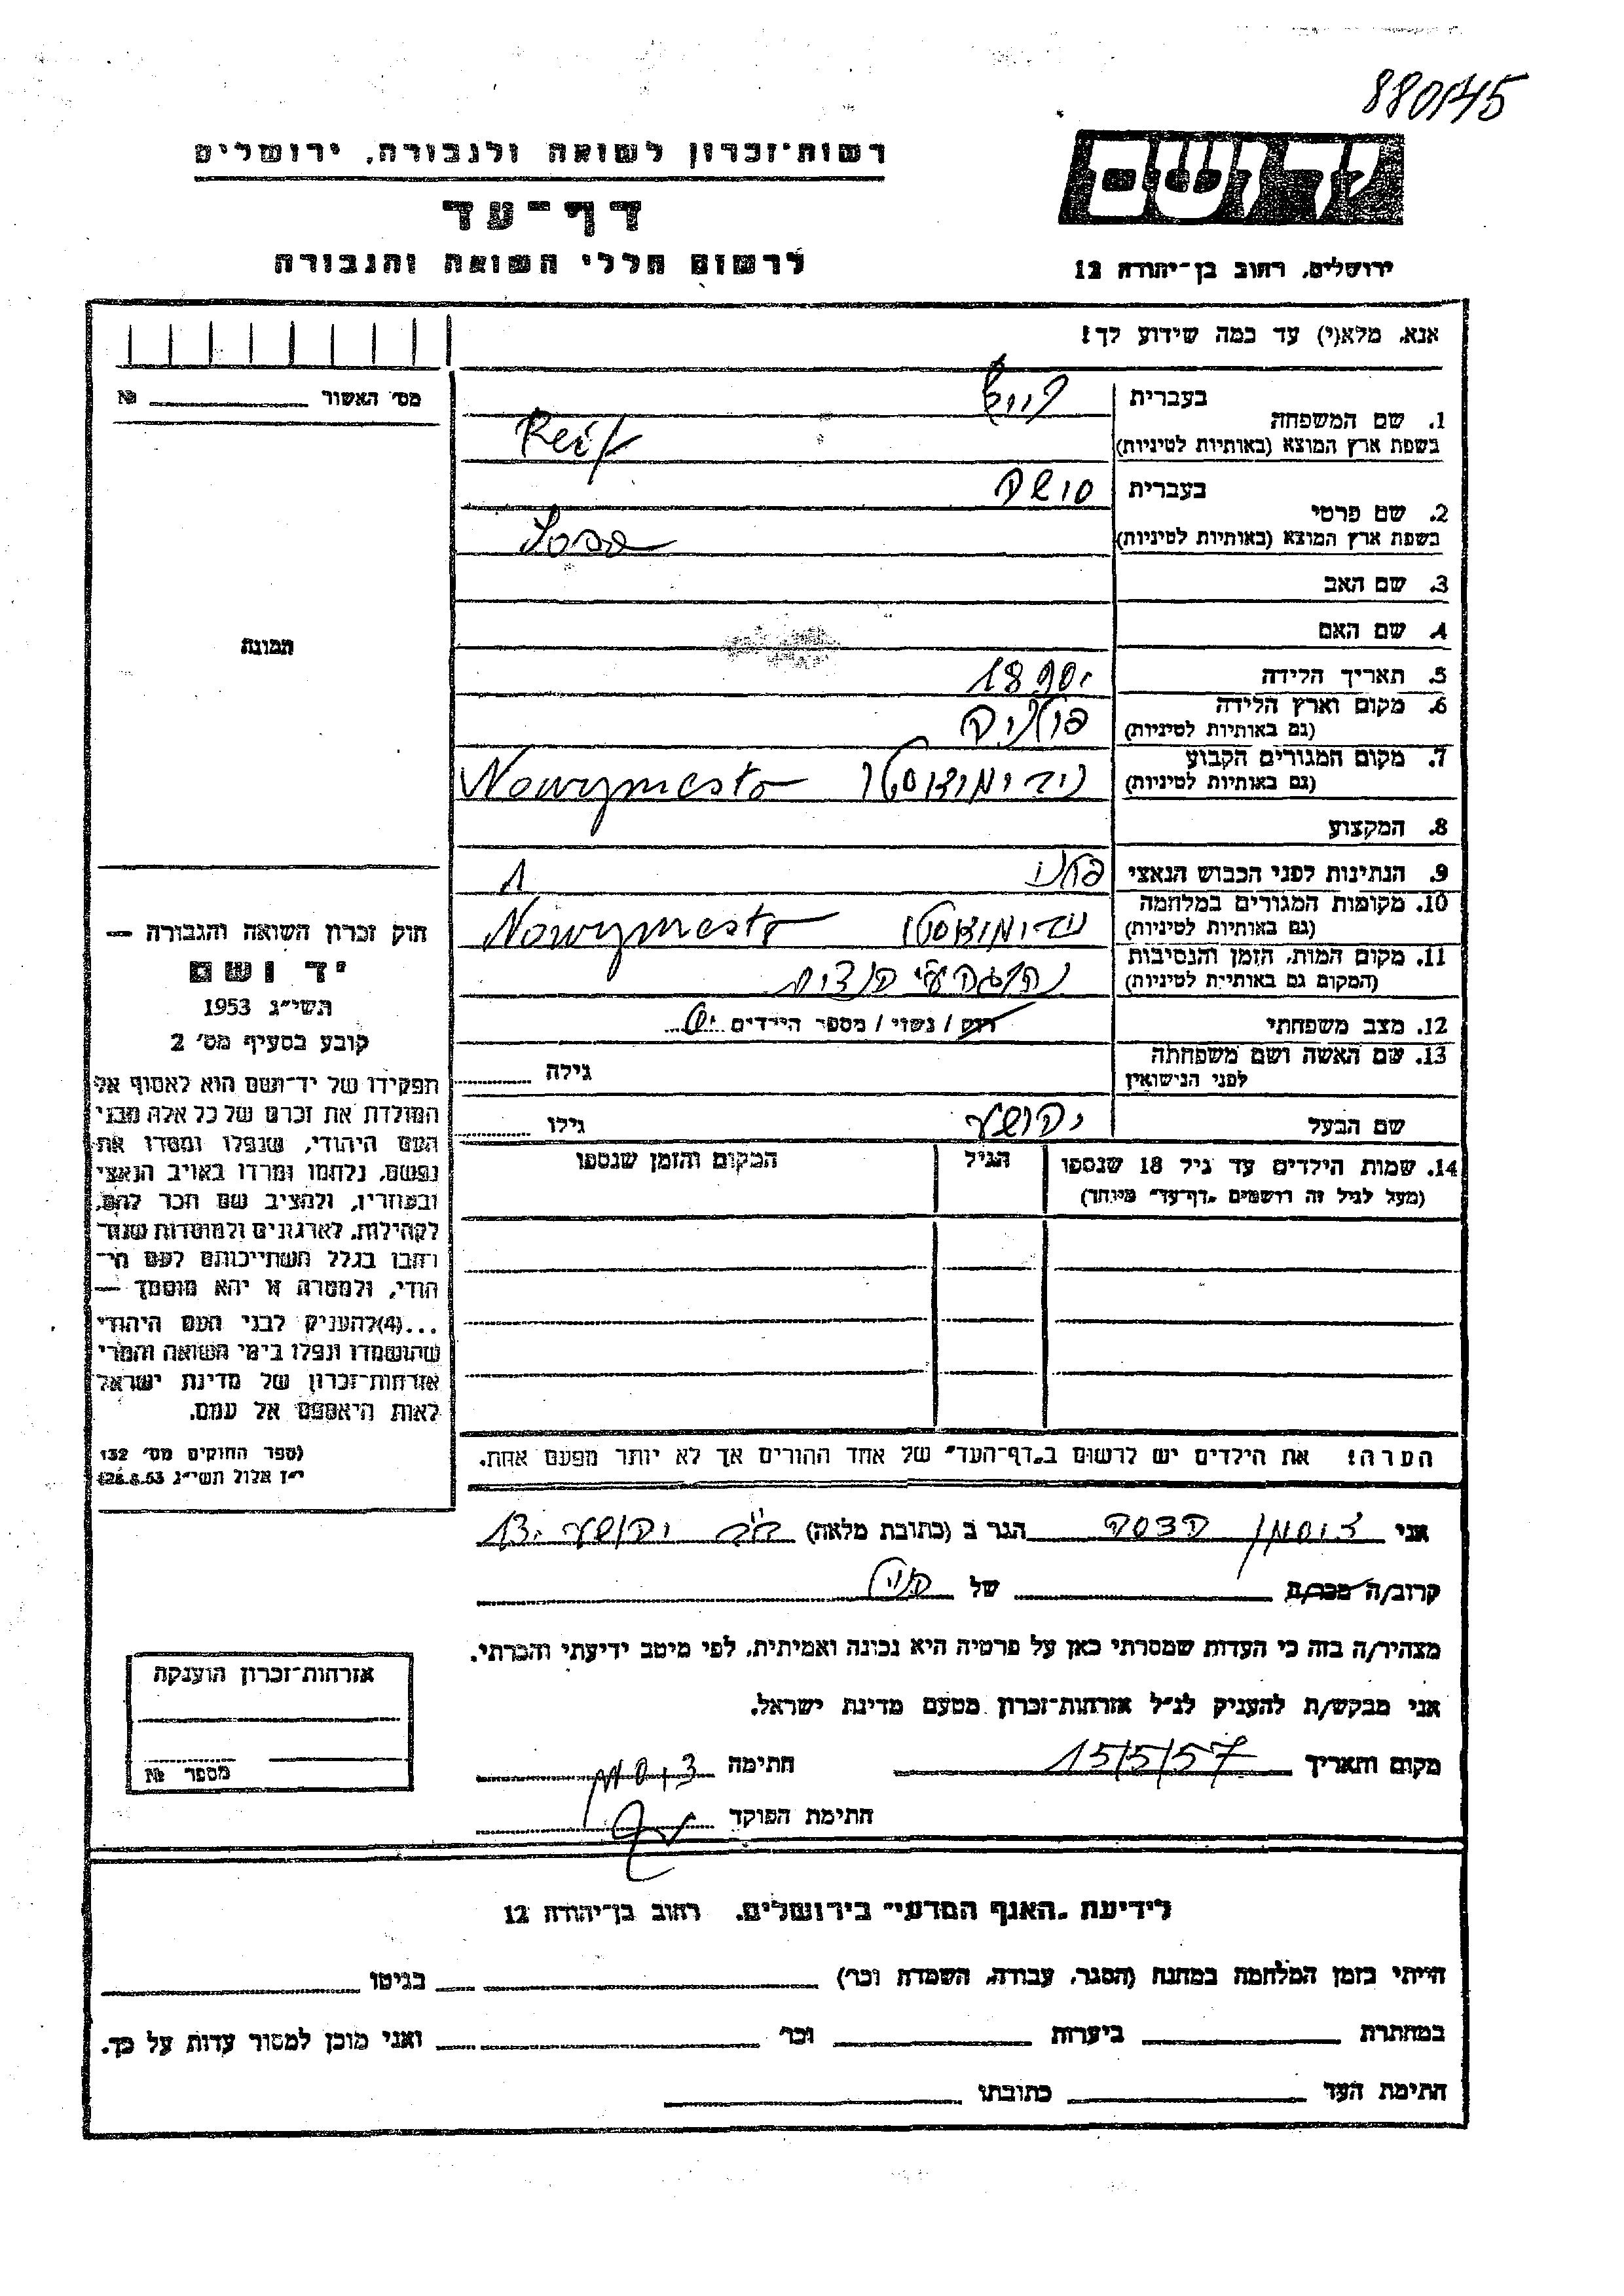 880145
רשות-זכרון לשואה ולגבורה, ירושלים
דף-עד
לרשום חללי השואה והגבורה
יד ושם
ירושלים, רחוב בן-יהודה 12
אנא, מלא(י) עד כמה שידוע לך!
מס׳ האשור № 
1. שם המשפחה
בעברית
בשפת ארץ המוצא (באותיות לטיניות) Reif
2. שם פרטי
בעברית סושה
בשפת ארץ המוצא (באותיות לטיניות)
3. שם האב
4. שם האם
תמונה
5. תאריך הלידה 1890
6. מקום וארץ הלידה (גם באותיות לטיניות) פולניה
7. מקום המגורים הקבוע (גם באותיות לטיניות) Nowymesto
8. המקצוע
9. הנתינות לפני הכבוש הנאצי
10. מקומות המגורים במלחמה (גם באותיות לטיניות) Nowymesto
11. מקום המות, הזמן והנסיבות (המקום גם באותיות לטיניות)
12. מצב משפחתי רווק / נשוי / מספר הילדים
13. שם האשה ושם משפחתה לפני הנישואין גילה
שם הבעל יהושע גילו
14. שמות הילדים עד גיל 18 שנספו (מעל לגיל זה רושמים "דף-עד" מיוחד)
הגיל
המקום והזמן שנספו
חוק זכרון השואה והגבורה —
יד ושם
תשי״ג 1953
קובע בסעיף מס׳ 2
תפקידו של יד-ושם הוא לאסוף אל
המולדת את זכרם של כל אלה מבני
העם היהודי, שנפלו ומסרו את
נפשם, נלחמו ומרדו באויב הנאצי
ובעוזריו, ולהציב שם וזכר להם,
לקהילות, לארגונים ולמוסדות שנח־
רבו בגלל השתייכותם לעם הי־
הודי, ולמטרה זו יהא מוסמך —
...(4)להעניק לבני העם היהודי
שהושמדו ונפלו בימי השואה והמרי
אזרחות-זכרון של מדינת ישראל
לאות היאספם אל עמם.
(ספר החוקים מס׳ 132
י״ז אלול תשי״ג 28.8.53)
הערה! את הילדים יש לרשום ב"דף-העד" של אחד ההורים אך לא יותר מפעם אחת.
אני זוסמן הדסה הגר ב (כתובת מלאה) יהושע 13
קרוב/ה מכר/ה של
מצהיר/ה בזה כי העדות שמסרתי כאן על פרטיה היא נכונה ואמיתית, לפי מיטב ידיעתי והכרתי.
אני מבקש/ת להעניק לנ״ל אזרחות-זכרון מטעם מדינת ישראל.
מקום ותאריך 15/5/57 חתימה
חתימת הפוקד
אזרחות-זכרון הוענקה
מספר №
לידיעת "האגף המדעי" בירושלים, רחוב בן-יהודה 12
הייתי בזמן המלחמה במחנה (הסגר, עבודה, השמדה וכו׳) בגיטו
במחתרת ביערות וכו׳ ואני מוכן למסור עדות על כך.
חתימת העד כתובתו